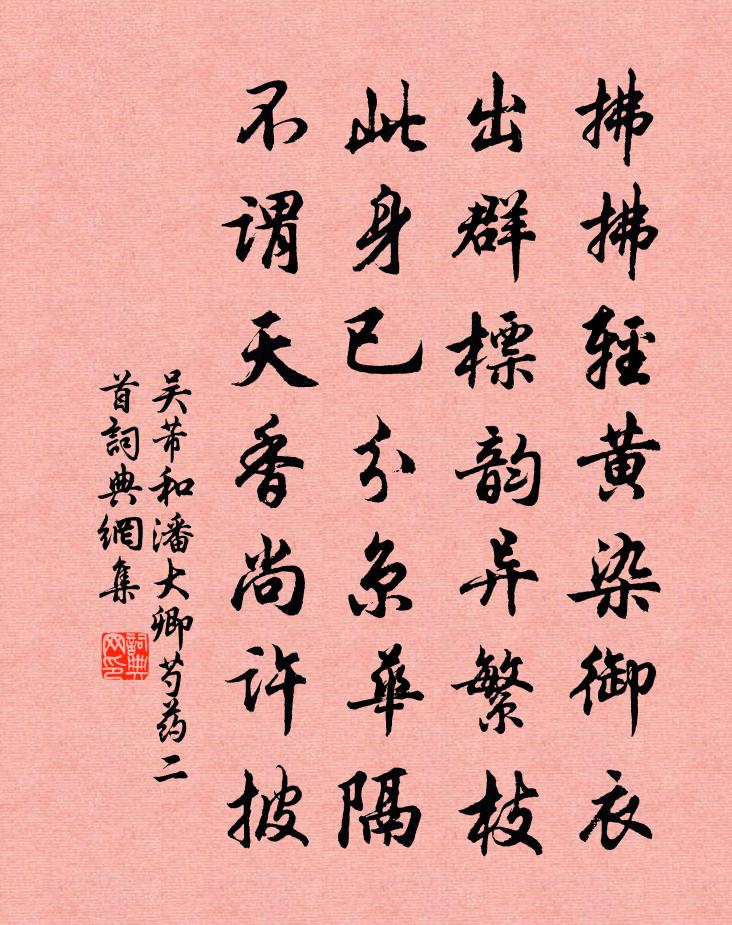 拂拂轻黄染御衣
出群標韵异繁枝
此身已分京華隔
不谓天香尚许披
吴芾和潘大卿芍药二
首詞典網集
詞典
网印